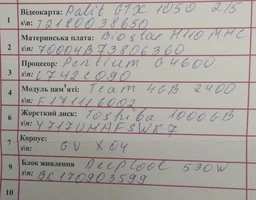 1 Відеокарта: Palit GTX 1050 2Гб
s\n: T2180038650
2 Материнська плата: Biostar H110MHC
s\n: 70004B73806360
3 Процесор: Pentium G4600
s\n: L742C090
4 Модуль пам'яті: Team 4GB 2400
s\n:
6 Жорсткий диск: Toshiba 1000GB
s\n: 4717UHAFSWK7
7 Корпус:
GV X04
9 Блок живлення Deepcool 530W
s\n: BC170903599
10